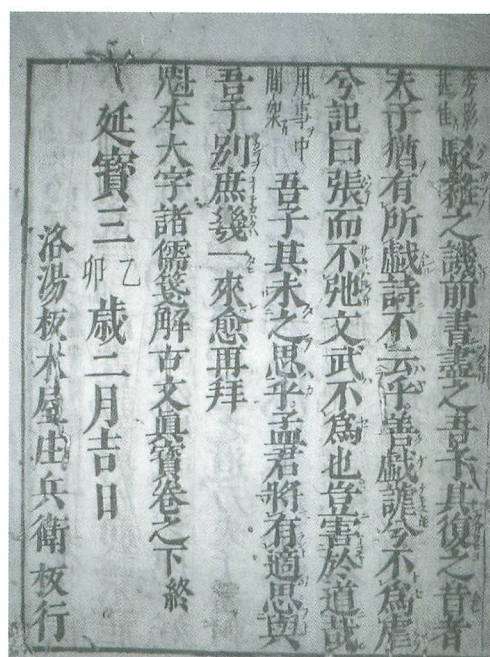 旁影甚佳 駁雜之譏前書盡之吾子其復之昔者
夫子猶有所戲詩不云乎善戲謔兮不為虐
兮記曰張而不弛文武不為也豈害於道哉
用事中間架 吾子其未之思乎孟君將有適思與
吾子別庶幾一來愈再拜
魁本大字諸儒箋解古文眞寶卷之下終
延寶三乙卯歲二月吉日
洛陽板木屋庄兵衛板行